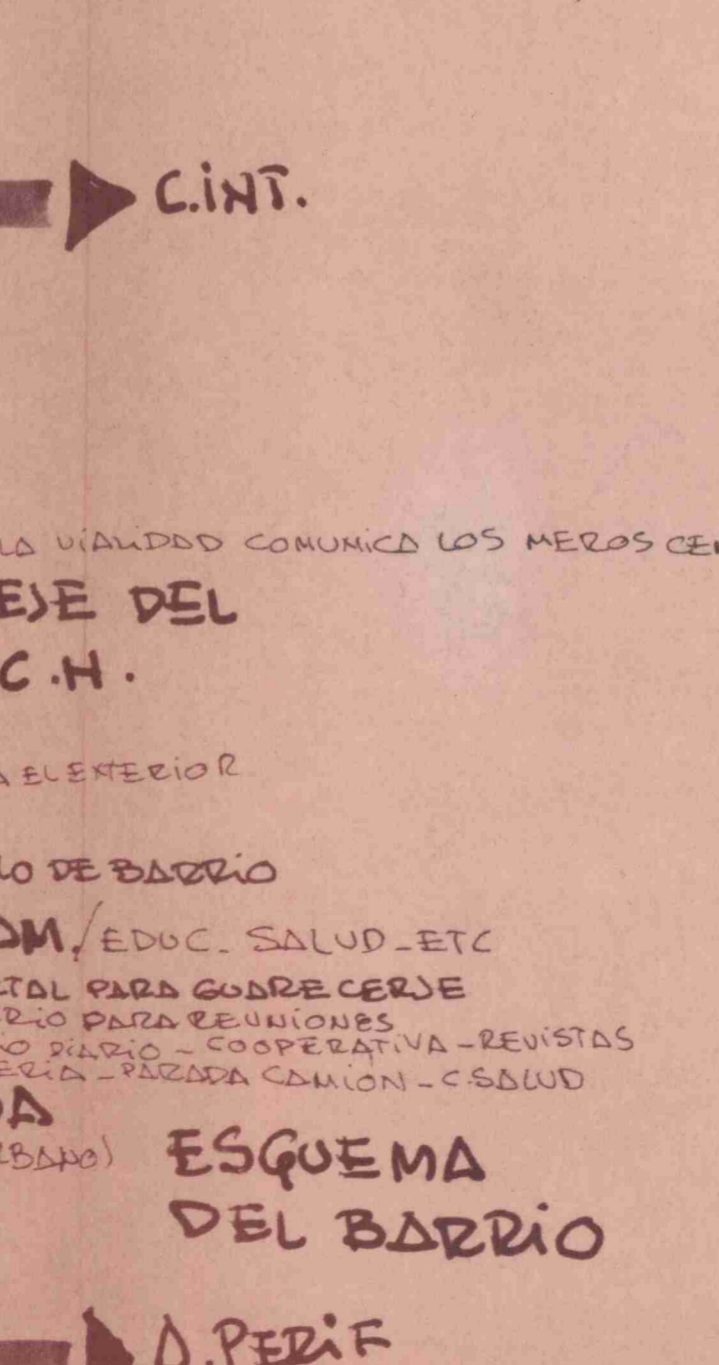 C.INT.
LA VIALIDAD COMUNICA LOS MEROS CEN
EJE DEL
C.H.
A EL EXTERIOR
LO DE BARRIO
DM./EDUC_ SALUD_ETC
TAL PARA GUARECERSE
RIO PARA REUNIONES
O DIARIO - COOPERATIVA - REVISTAS
ERIA - PARADA CAMION - C.SALUD
DA
RBANO)
ESQUEMA
DEL BARRIO
A.PERIF